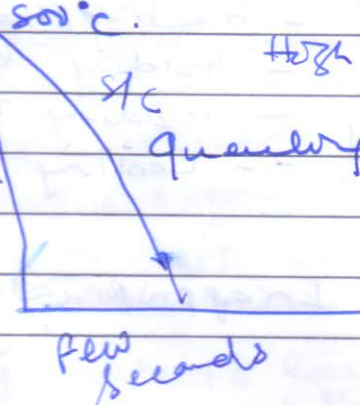 500°C.
High
S/C
Quenching
Few
Seconds